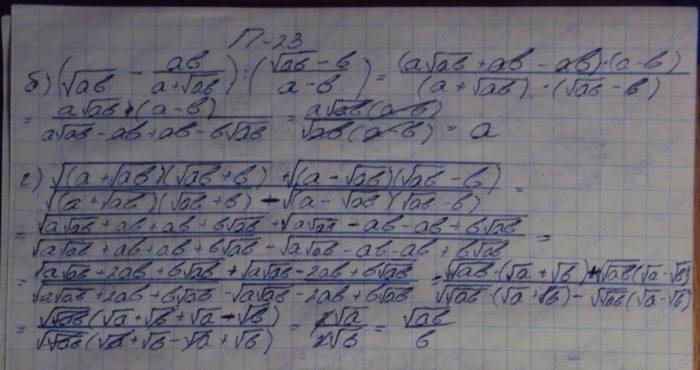 П-23
б) (√ab - ab/(a+√ab)) : ((√ab - b)/(a-b)) = ((a√ab + ab - ab)·(a-b))/((a+√ab)·(√ab-b))
= (a√ab·(a-b))/(a√ab - ab + ab - b√ab) = (a√ab(a-b))/(√ab(a-b)) = a
г) (√((a+√ab)(√ab+b)) + √((a-√ab)(√ab-b)))/(√((a+√ab)(√ab+b)) - √((a-√ab)(√ab-b))) =
= (√(a√ab+ab+ab+b√ab) + √(a√ab-ab-ab+b√ab))/(√(a√ab+ab+ab+b√ab) - √(a√ab-ab-ab+b√ab)) =
= (√(a√ab+2ab+b√ab) + √(a√ab-2ab+b√ab))/(√(a√ab+2ab+b√ab) - √(a√ab-2ab+b√ab)) = (√√ab·(√a+√b) + √√ab(√a-√b))/(√√ab·(√a+√b) - √√ab(√a-√b))
= (√√ab(√a+√b+√a-√b))/(√√ab(√a+√b-√a+√b)) = 2√a/2√b = √ab/b